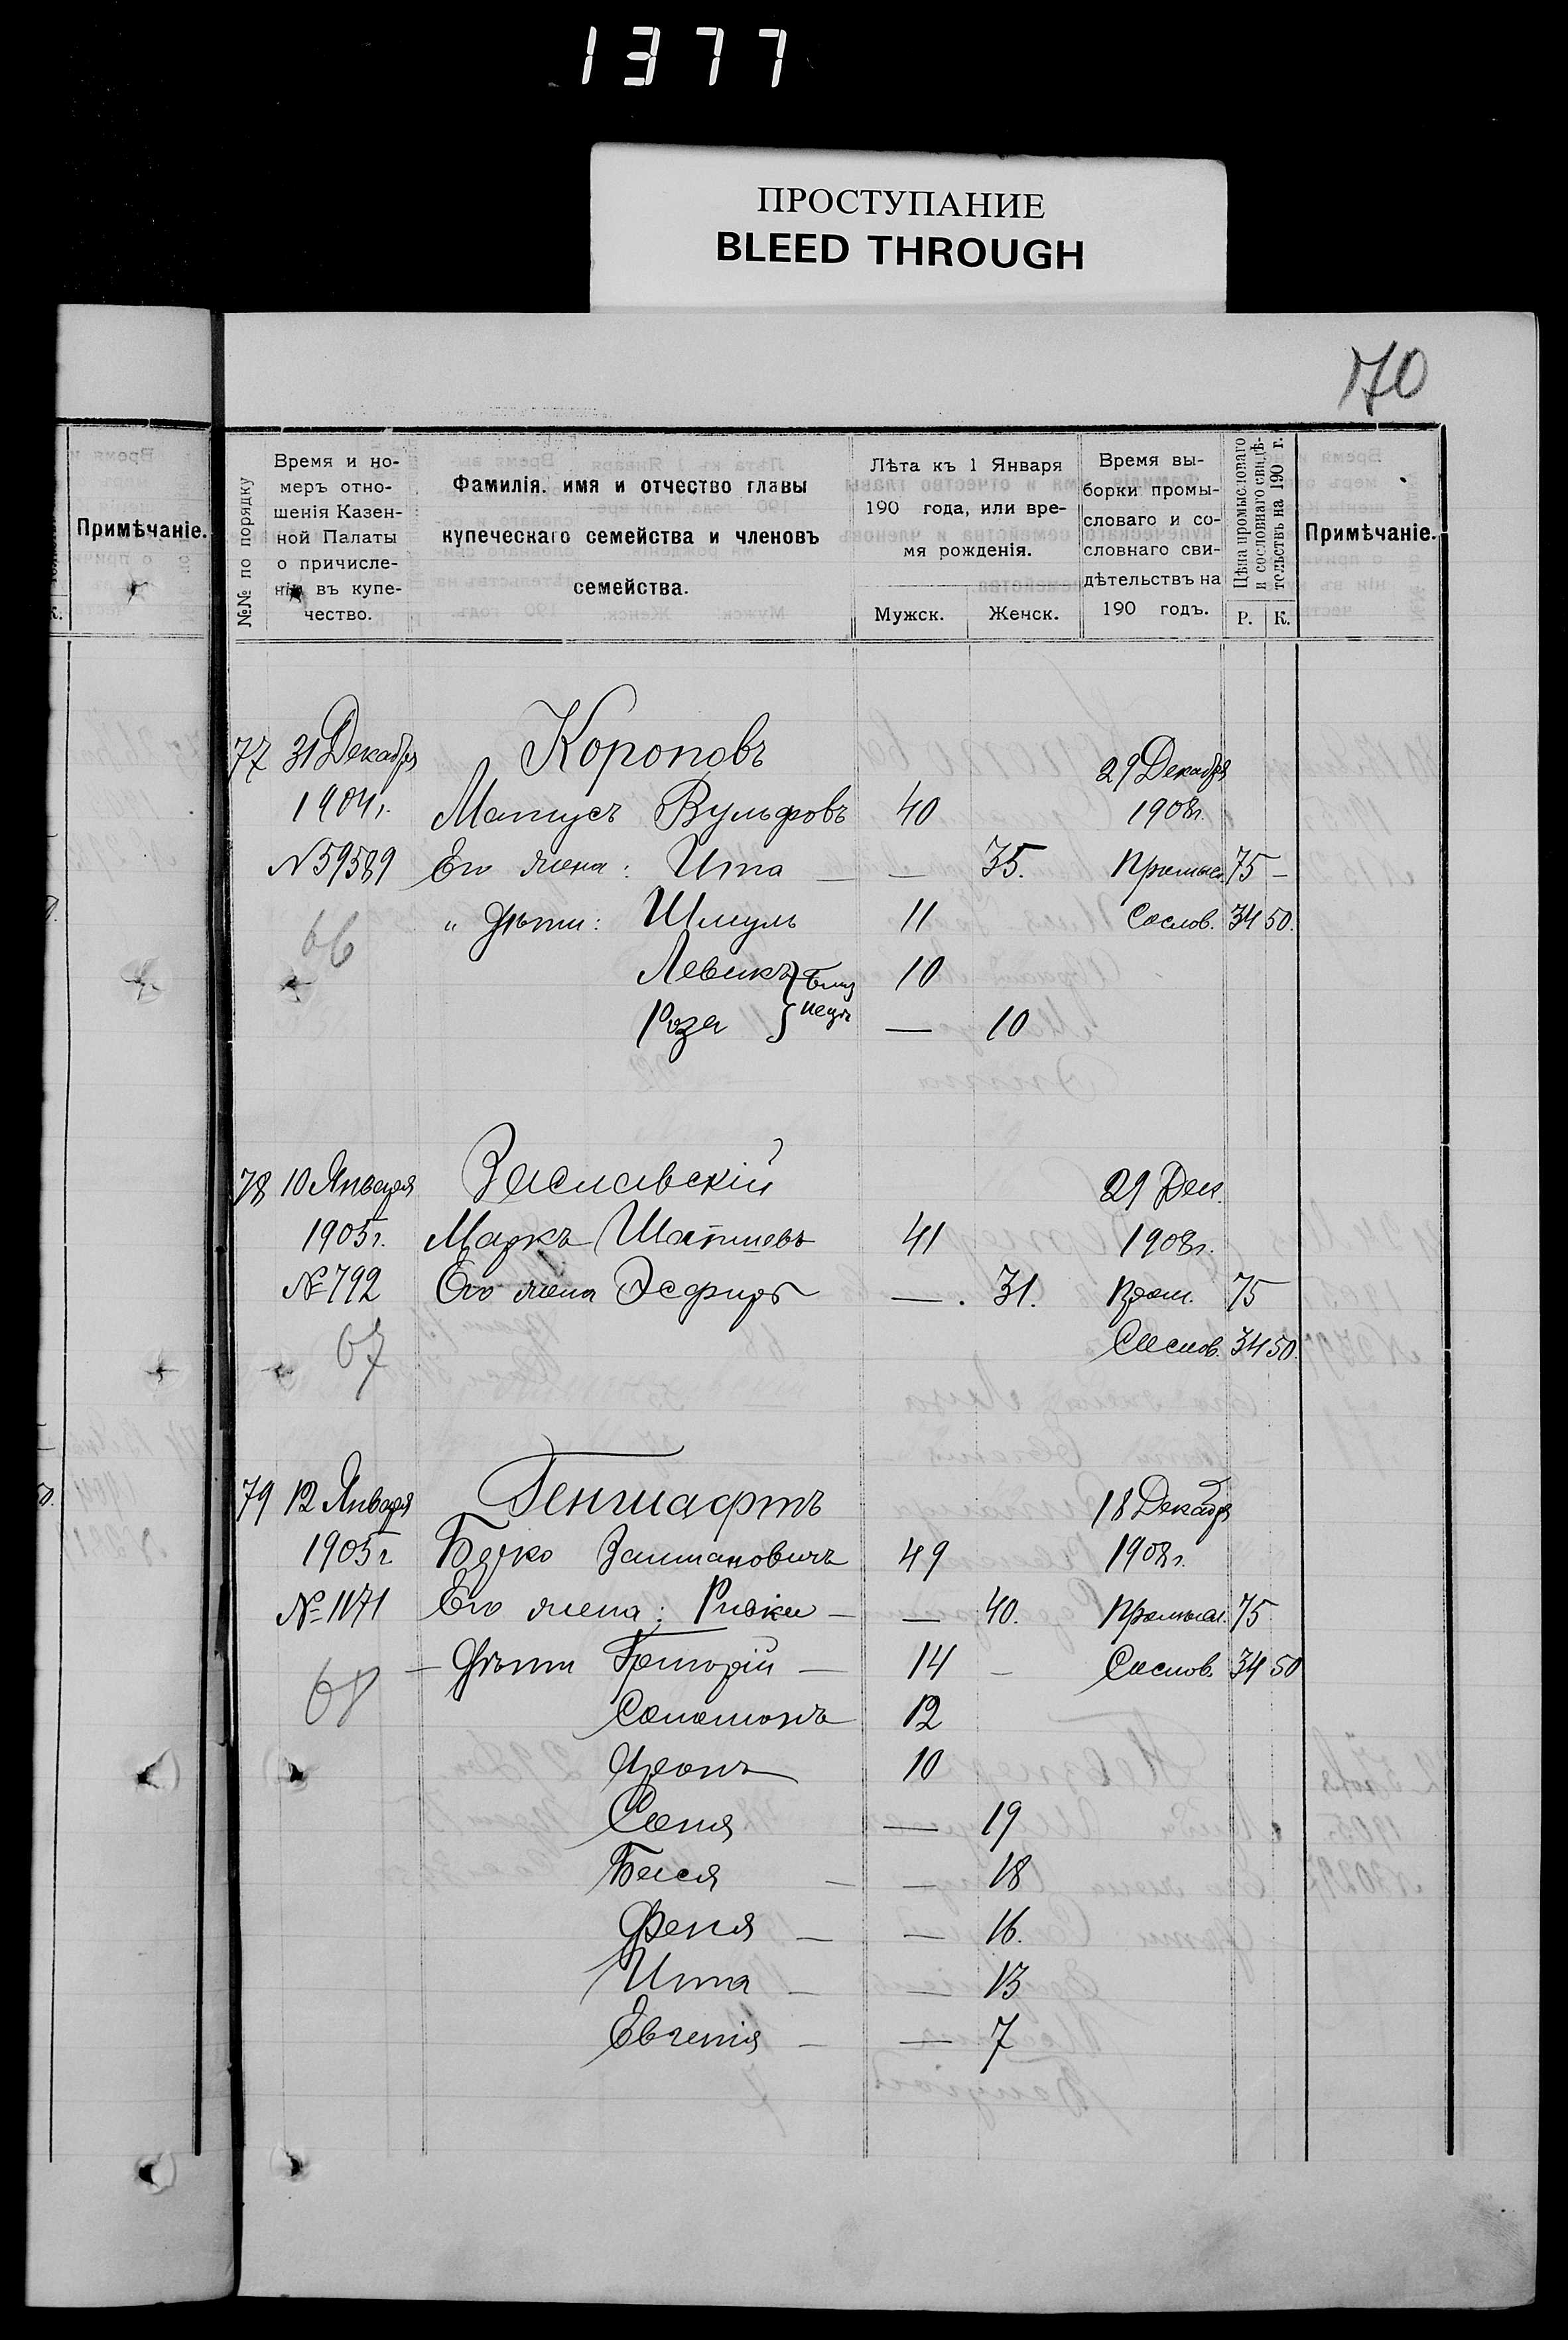 1377
ПРОСТУПАНИЕ
BLEED THROUGH
70
Примѣчаніе.
№№ по порядку
Время и но-
меръ отно-
шенія Казен-
ной Палаты
о причисле-
ніи въ купе-
чество.
Фамилія, имя и отчество главы
купеческаго семейства и членовъ
семейства.
Лѣта къ 1 Января
190 года, или вре-
мя рожденія.
Мужск. Женск.
Время вы-
борки промы-
словаго и со-
словнаго сви-
дѣтельствъ на
190 годъ.
Цѣна промысловаго
и сословнаго свидѣ-
тельствъ на 190 г.
Р. К.
Примѣчаніе.
77 31 Декабря Короповъ 29 Декабря
1904 г. Матусъ Вульфовъ 40 1908 г.
№ 59589 Его жена: Ита — — 35. Промысл. 75 —
66 " Дѣти: Шмуль 11 Сослов. 34 50.
Левикъ 10
Роза — 10
78 10 Января Заславскій 29 Дек.
1905 г. Маркъ 41 1908 г.
№ 792 Его жена Эсфирь — . 31. Пром. 75
67 Сослов. 34 50.
79 12 Января Геншафтъ 18 Декабря
1905 г. Берко Залмановичъ 49 1908 г.
№ 1171 Его жена: — — 40. Промысл. 75
68 — Дѣти Григорій — 14 — Сослов. 34 50
Соломонъ 12
10
Соня — 19
Бася — — 18
Феня — — 16.
Итта — — 13
Евгенія — — 7